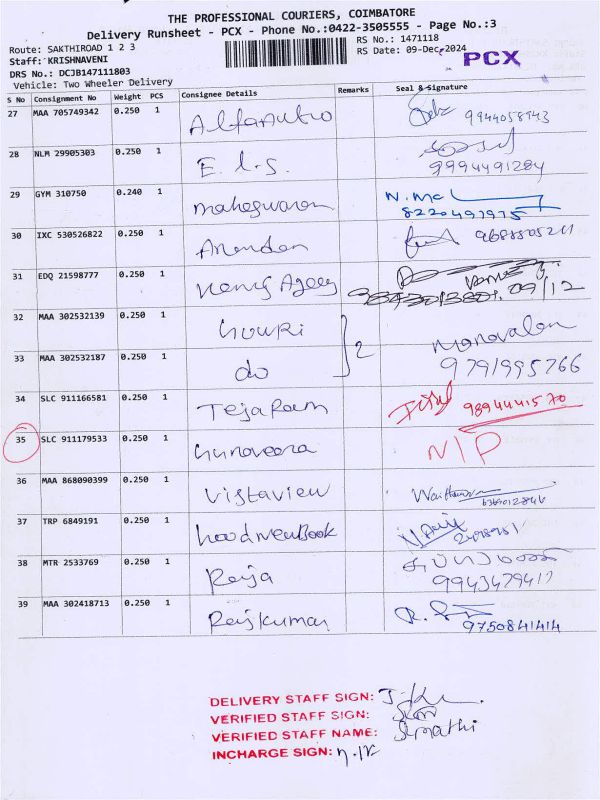 THE PROFESSIONAL COURIERS, COIMBATORE
Delivery Runsheet - PCX - Phone No.:0422-3505555 - Page No.:3
Route: SAKTHIROAD 1 2 3
Staff: KRISHNAVENI
DRS No.: DCJB147111803
Vehicle: Two Wheeler Delivery
RS No.: 1471118
RS Date: 09-Dec-2024
PCX
S No Consignment No Weight PCS Consignee Details Remarks Seal & Signature
27 MAA 705749342 0.250 1 9944058943
28 NLM 29905303 0.250 1 E.l.s. 9994491284
29 GYM 310750 0.240 1 Maheswaran N. Mal 8220491975
30 IXC 530526822 0.250 1 Anandan
31 EDQ 21598777 0.250 1 09/12
32 MAA 302532139 0.250 1 Gouri 2 Manavalan
33 MAA 302532187 0.250 1 do 9791995766
34 SLC 911166581 0.250 1 TejaRam 9894441570
35 SLC 911179533 0.250 1 Gunaveera N/P
36 MAA 868090399 0.250 1 Vistaview 6369012846
37 TRP 6849191 0.250 1
38 MTR 2533769 0.250 1 Raja 9943479417
39 MAA 302418713 0.250 1 Rajkumar 9750841414
DELIVERY STAFF SIGN:
VERIFIED STAFF SIGN:
VERIFIED STAFF NAME: Sumathi
INCHARGE SIGN: